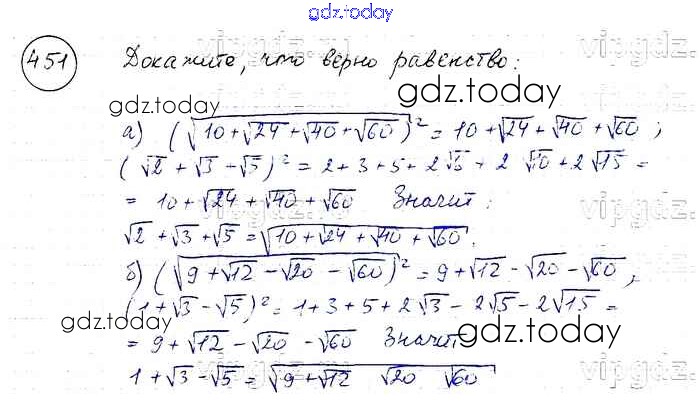 gdz.today
451 Докажите, что верно равенство:
gdz.today
а) (√(10+√24+√40+√60))² = 10+√24+√40+√60;
(√2+√3-√5)² = 2+3+5+2√6+2√10+2√15=
= 10+√24+√40+√60 Значит:
√2+√3+√5=√(10+√24+√40+√60).
б) (√(9+√12-√20-√60))² = 9+√12-√20-√60;
(1+√3-√5)² = 1+3+5+2√3-2√5-2√15=
gdz.today
gdz.today
= 9+√12-√20-√60 Значит
1+√3-√5=√(9+√12 √20 √60)
vipgdz.
vipgdz.
vipgdz.
vipgdz.